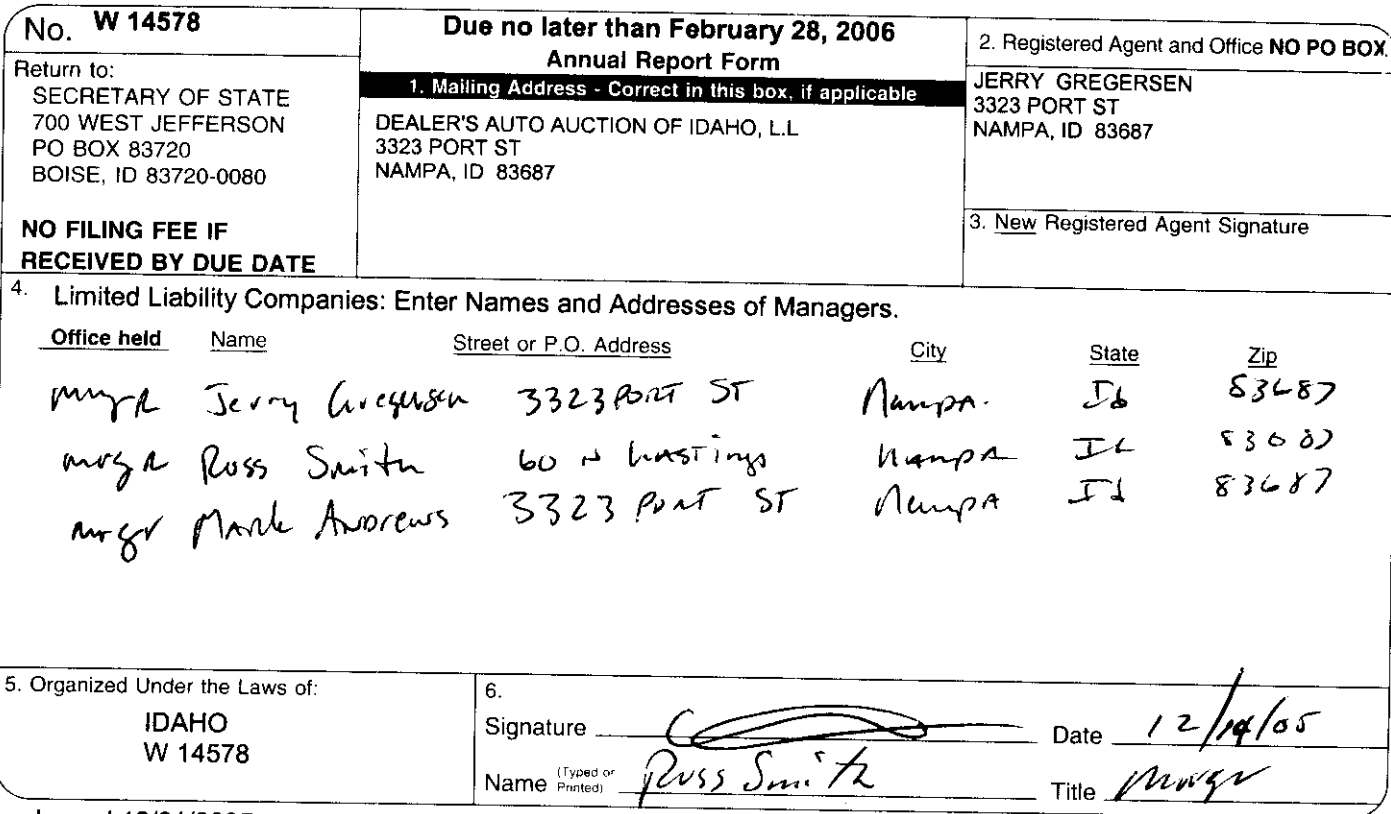 No. W 14578
Return to:
SECRETARY OF STATE
700 WEST JEFFERSON
PO BOX 83720
BOISE, ID 83720-0080
NO FILING FEE IF
RECEIVED BY DUE DATE
Due no later than February 28, 2006
Annual Report Form
1. Mailing Address - Correct in this box, if applicable
DEALER'S AUTO AUCTION OF IDAHO, L.L
3323 PORT ST
NAMPA, ID 83687
2. Registered Agent and Office NO PO BOX
JERRY GREGERSEN
3323 PORT ST
NAMPA, ID 83687
3. New Registered Agent Signature
4. Limited Liability Companies: Enter Names and Addresses of Managers.
Office held Name Street or P.O. Address City State Zip
mngR Jerry Gregersen 3323 PORT ST Nampa. Id 83687
mngR Ross Smith 60 N Hastings Nampa Id
mngr Mark Andrews 3323 PORT ST Nampa Id 83687
5. Organized Under the Laws of:
IDAHO
W 14578
6.
Signature Date 12/14/05
Name (Typed or Printed) Russ Smith Title mngr